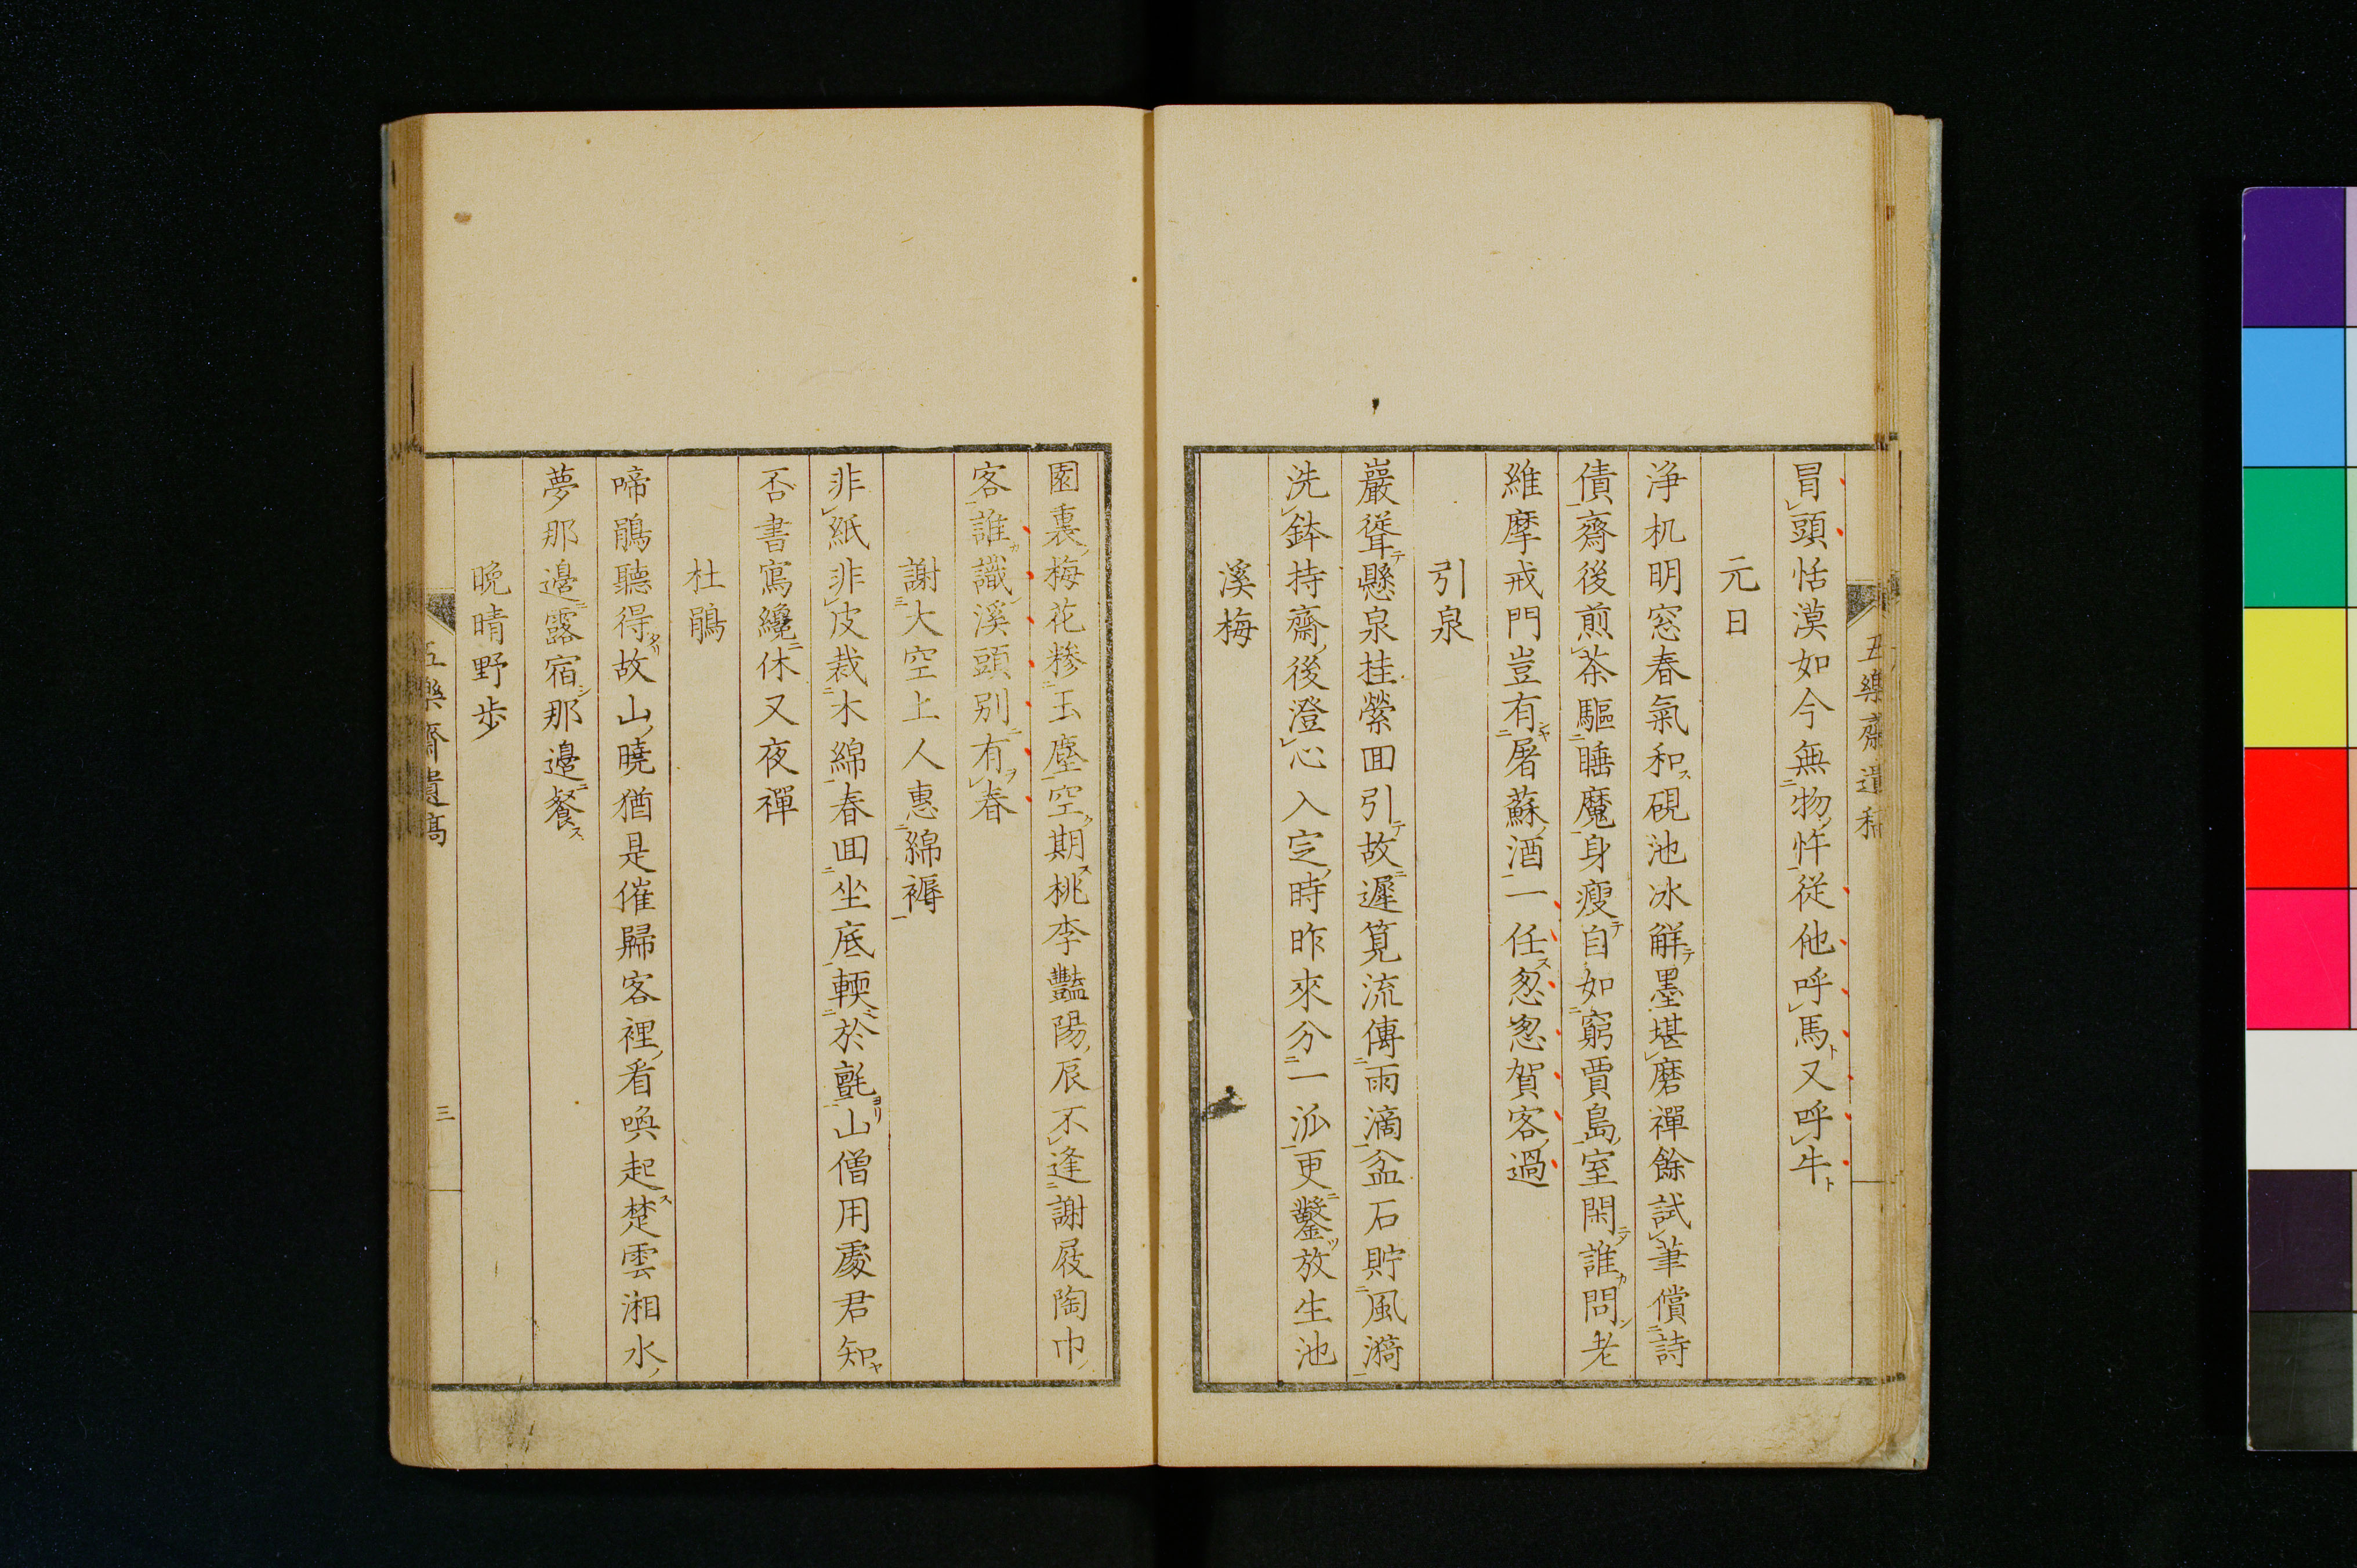 冒頭恬漠如今無物忤從他呼馬又呼牛
元日
浄机明窓春氣和硯池冰觧墨堪磨禪餘試筆償詩
債齋後煎茶驅睡魔身瘦自如窮賈島室閑誰問老
維摩戒門豈有屠蘇酒一任怱怱賀客過
引泉
巖聳懸泉挂縈回引故遲筧流傳雨滴盆石貯風漪
洗鉢持齋後澄心入定時昨來分一泒更鑿放生池
溪梅
園裏梅花糝玉塵空期桃李豔陽辰不逢謝屐陶巾
客誰識溪頭別有春
謝大空上人惠綿褥
非紙非皮裁木綿春回坐底輭於氈山僧用處君知
否書寫纔休又夜禪
杜鵑
啼鵑聽得故山曉猶是催歸客裡看喚起楚雲湘水
夢那邉露宿那邉餐
晩晴野步
五樂齋遺稿
三